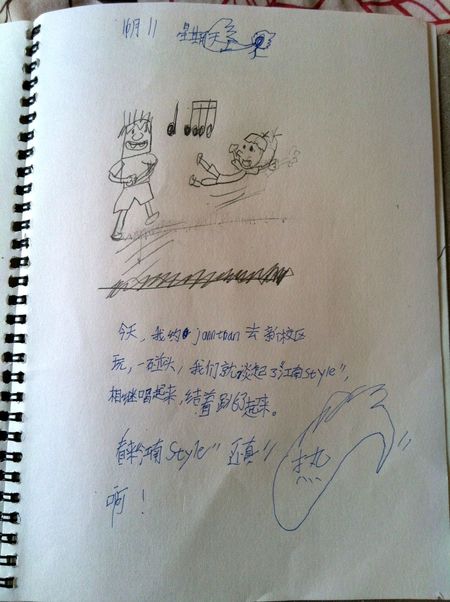 10月11 星期天
今天，我约 jonathan 去新校区
玩，一碰头，我们就谈起了“江南style”，
相继唱起来，结着跳了起来。
看来“江南Style”还真“热”
啊！